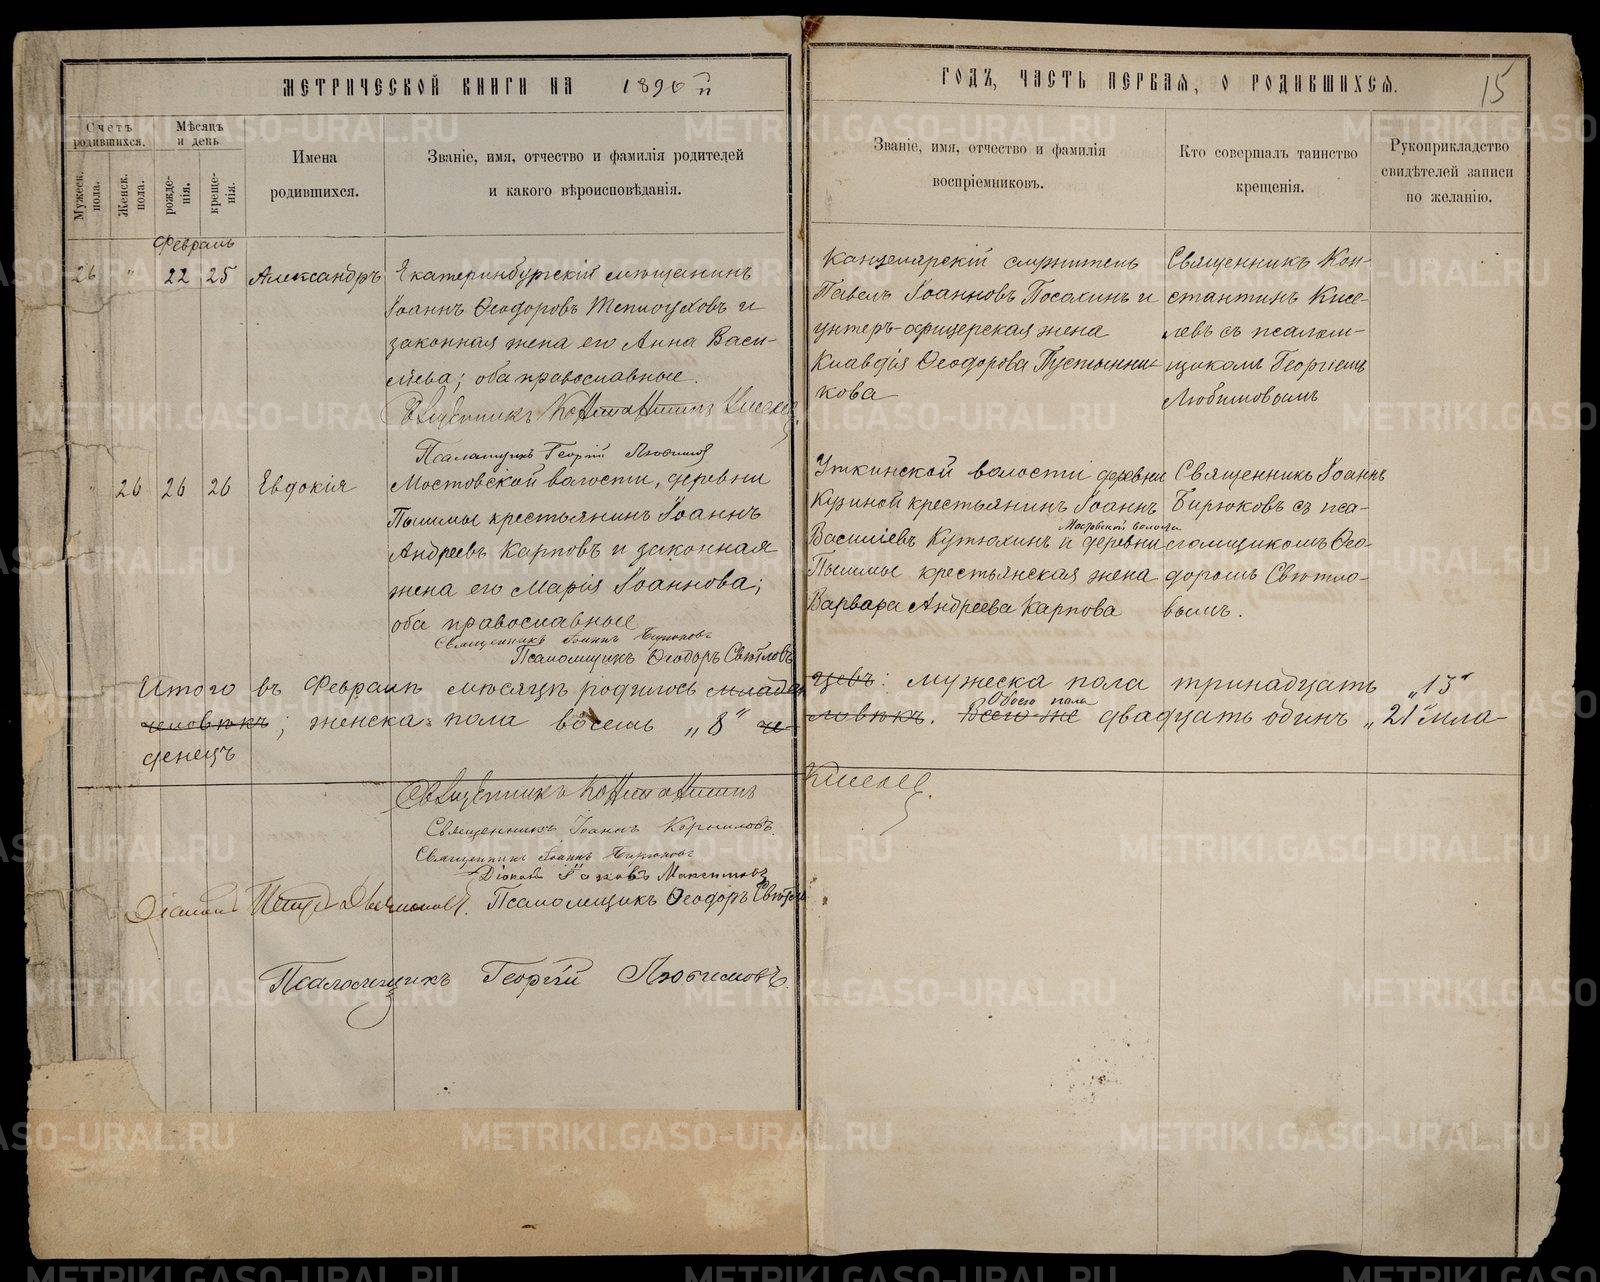 МЕТРИЧЕСКОЙ КНИГИ НА 1896 й
ГОДЪ, ЧАСТЬ ПЕРВАЯ, О РОДИВШИХСЯ.
15
Счетъ родившихся.
Мужеск. пола.
Женск. пола.
Мѣсяцъ и день
рожденія.
крещенія.
Имена
родившихся.
Званіе, имя, отчество и фамилія родителей
и какого вѣроисповѣданія.
Званіе, имя, отчество и фамилія
воспріемниковъ.
Кто совершалъ таинство
крещенія.
Рукоприкладство
свидѣтелей записи
по желанію.
Февраль
26 " 22 25 Александръ
Екатеринбургскій мѣщанинъ
Іоаннъ Ѳеодоровъ Теплоуховъ и
законная жена его Анна Васи-
льева; оба православные.
Священникъ Константинъ Киселевъ
Псаломщикъ Георгій Любимовъ
Канцелярскій служитель
Павелъ Іоанновъ Посохинъ и
унтеръ-офицерская жена
Клавдія Ѳеодорова Пустынни-
кова
Священникъ Кон-
стантинъ Кисе-
левъ съ псалом-
щикомъ Георгіемъ
Любимовымъ
" 26 26 26 Евдокія
Мостовской волости, деревни
Пышмы крестьянинъ Іоаннъ
Андреевъ Карповъ и законная
жена его Марія Іоаннова;
оба православные
Священникъ Іоаннъ Бирюковъ
Псаломщикъ Ѳеодоръ Свѣтловъ
Уткинской волости деревни
Кузиной крестьянинъ Іоаннъ
Василіевъ Кутюхинъ и Мостовской волости деревни
Пышмы крестьянская жена
Варвара Андреева Карпова
Священникъ Іоаннъ
Бирюковъ съ пса-
ломщикомъ Ѳео-
доромъ Свѣтло-
вымъ.
Итого въ Февралѣ мѣсяцѣ родилось младен
цевъ: мужеска пола тринадцать „13"
человѣкъ; женска пола восемь „8" че-
ловѣкъ. Всего же Обоего пола двадцать одинъ „21" мла-
денецъ
Священникъ Константинъ Киселевъ.
Священникъ Іоаннъ Корниловъ.
Священникъ Іоаннъ Бирюковъ
Діаконъ Іаковъ Максимовъ
Діаконъ Петръ
Псаломщикъ Ѳеодоръ Свѣтловъ
Псаломщикъ Георгій Любимовъ.
METRIKI.GASO-URAL.RU